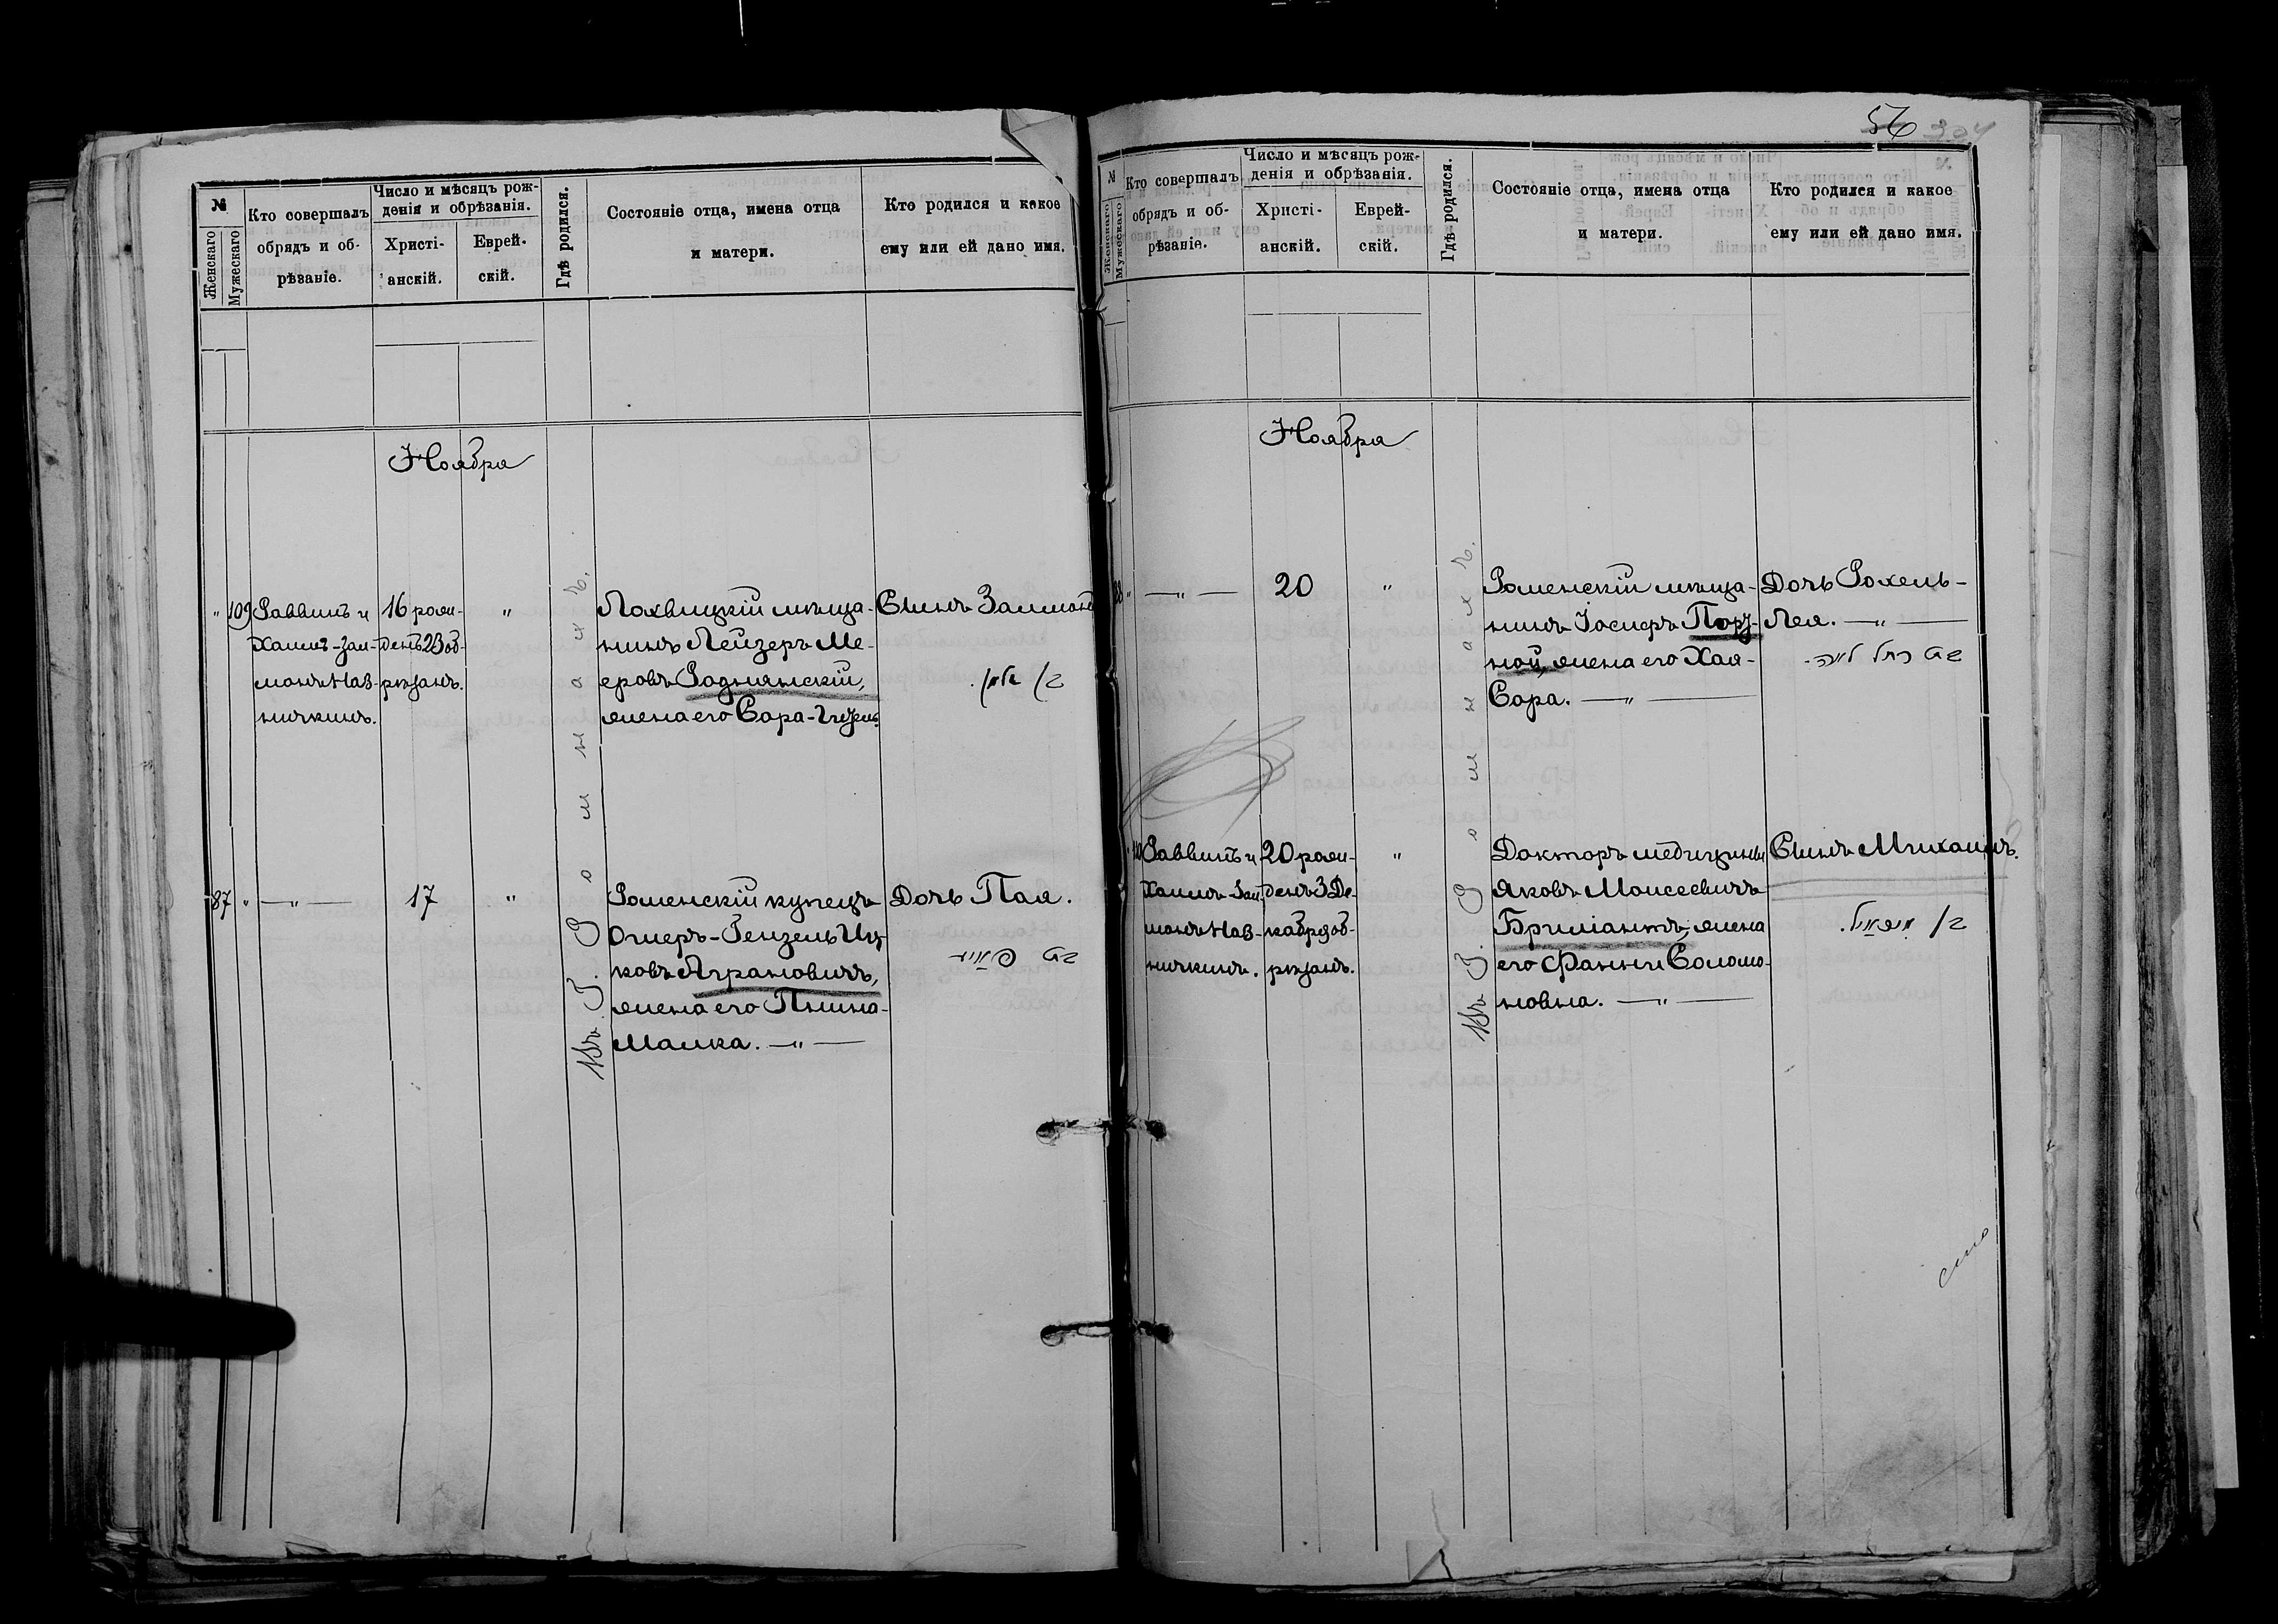 №
Женскаго
Мужескаго
Кто совершалъ
обрядъ и об-
рѣзаніе.
Число и мѣсяцъ рож-
денія и обрѣзанія.
Христі-
анскій.
Еврей-
скій.
Гдѣ родился.
Состояніе отца, имена отца
и матери.
Кто родился и какое
ему или ей дано имя.
Ноября
" 109
Раввинъ и
Хаимъ-Зал-
манъ Нав-
ничкинъ.
16 рож-
денъ 23 об-
рѣзанъ.
"
Въ г. Ромнахъ.
Лохвицкій мѣща-
нинъ Лейзеръ Ме-
еровъ Роднянскій,
жена его Сара-
Сынъ Залманъ
בן זלמן.
87 "
— " —
17
"
Роменскій купецъ
Ошеръ-Гензель Иц-
ковъ Аграновичъ,
жена его Пшина-
Малка. — " —
Дочь Пая.
בת פאיא
56 304
№
Женскаго
Мужескаго
Кто совершалъ
обрядъ и об-
рѣзаніе.
Число и мѣсяцъ рож-
денія и обрѣзанія.
Христі-
анскій.
Еврей-
скій.
Гдѣ родился.
Состояніе отца, имена отца
и матери.
Кто родился и какое
ему или ей дано имя.
Ноября
88 "
— " —
20
"
Въ г. Ромнахъ.
Роменскій мѣща-
нинъ Іосифъ Порт-
ной, жена его Хая-
Сара. — " —
Дочь Рохель-
Лея. — " —
בת רחל לאה.
" 110
Раввинъ и
Хаимъ-Зал-
манъ Нав-
ничкинъ.
20 рож-
денъ 3 Де-
кабря об-
рѣзанъ.
"
Докторъ медицины
Яковъ Моисеевичъ
Бриліантъ, жена
его Фанни Соломо-
новна. — " —
Сынъ Михаилъ.
בן מיכאל.